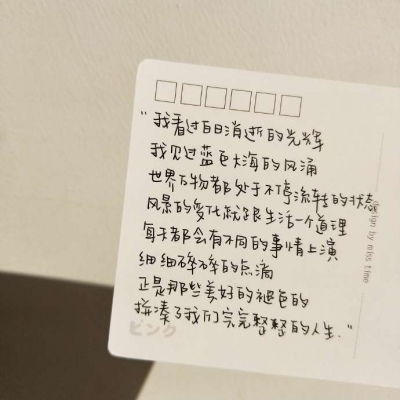 "我看过白日消逝的光辉
我见过蓝色大海的风涌
世界万物都处于不停流转的状态
风景的变化就跟生活一个道理
每天都会有不同的事情上演
细细碎碎的点滴
正是那些美好的褪色的
拼凑了我们完完整整的人生."
ピンク
design by miss time